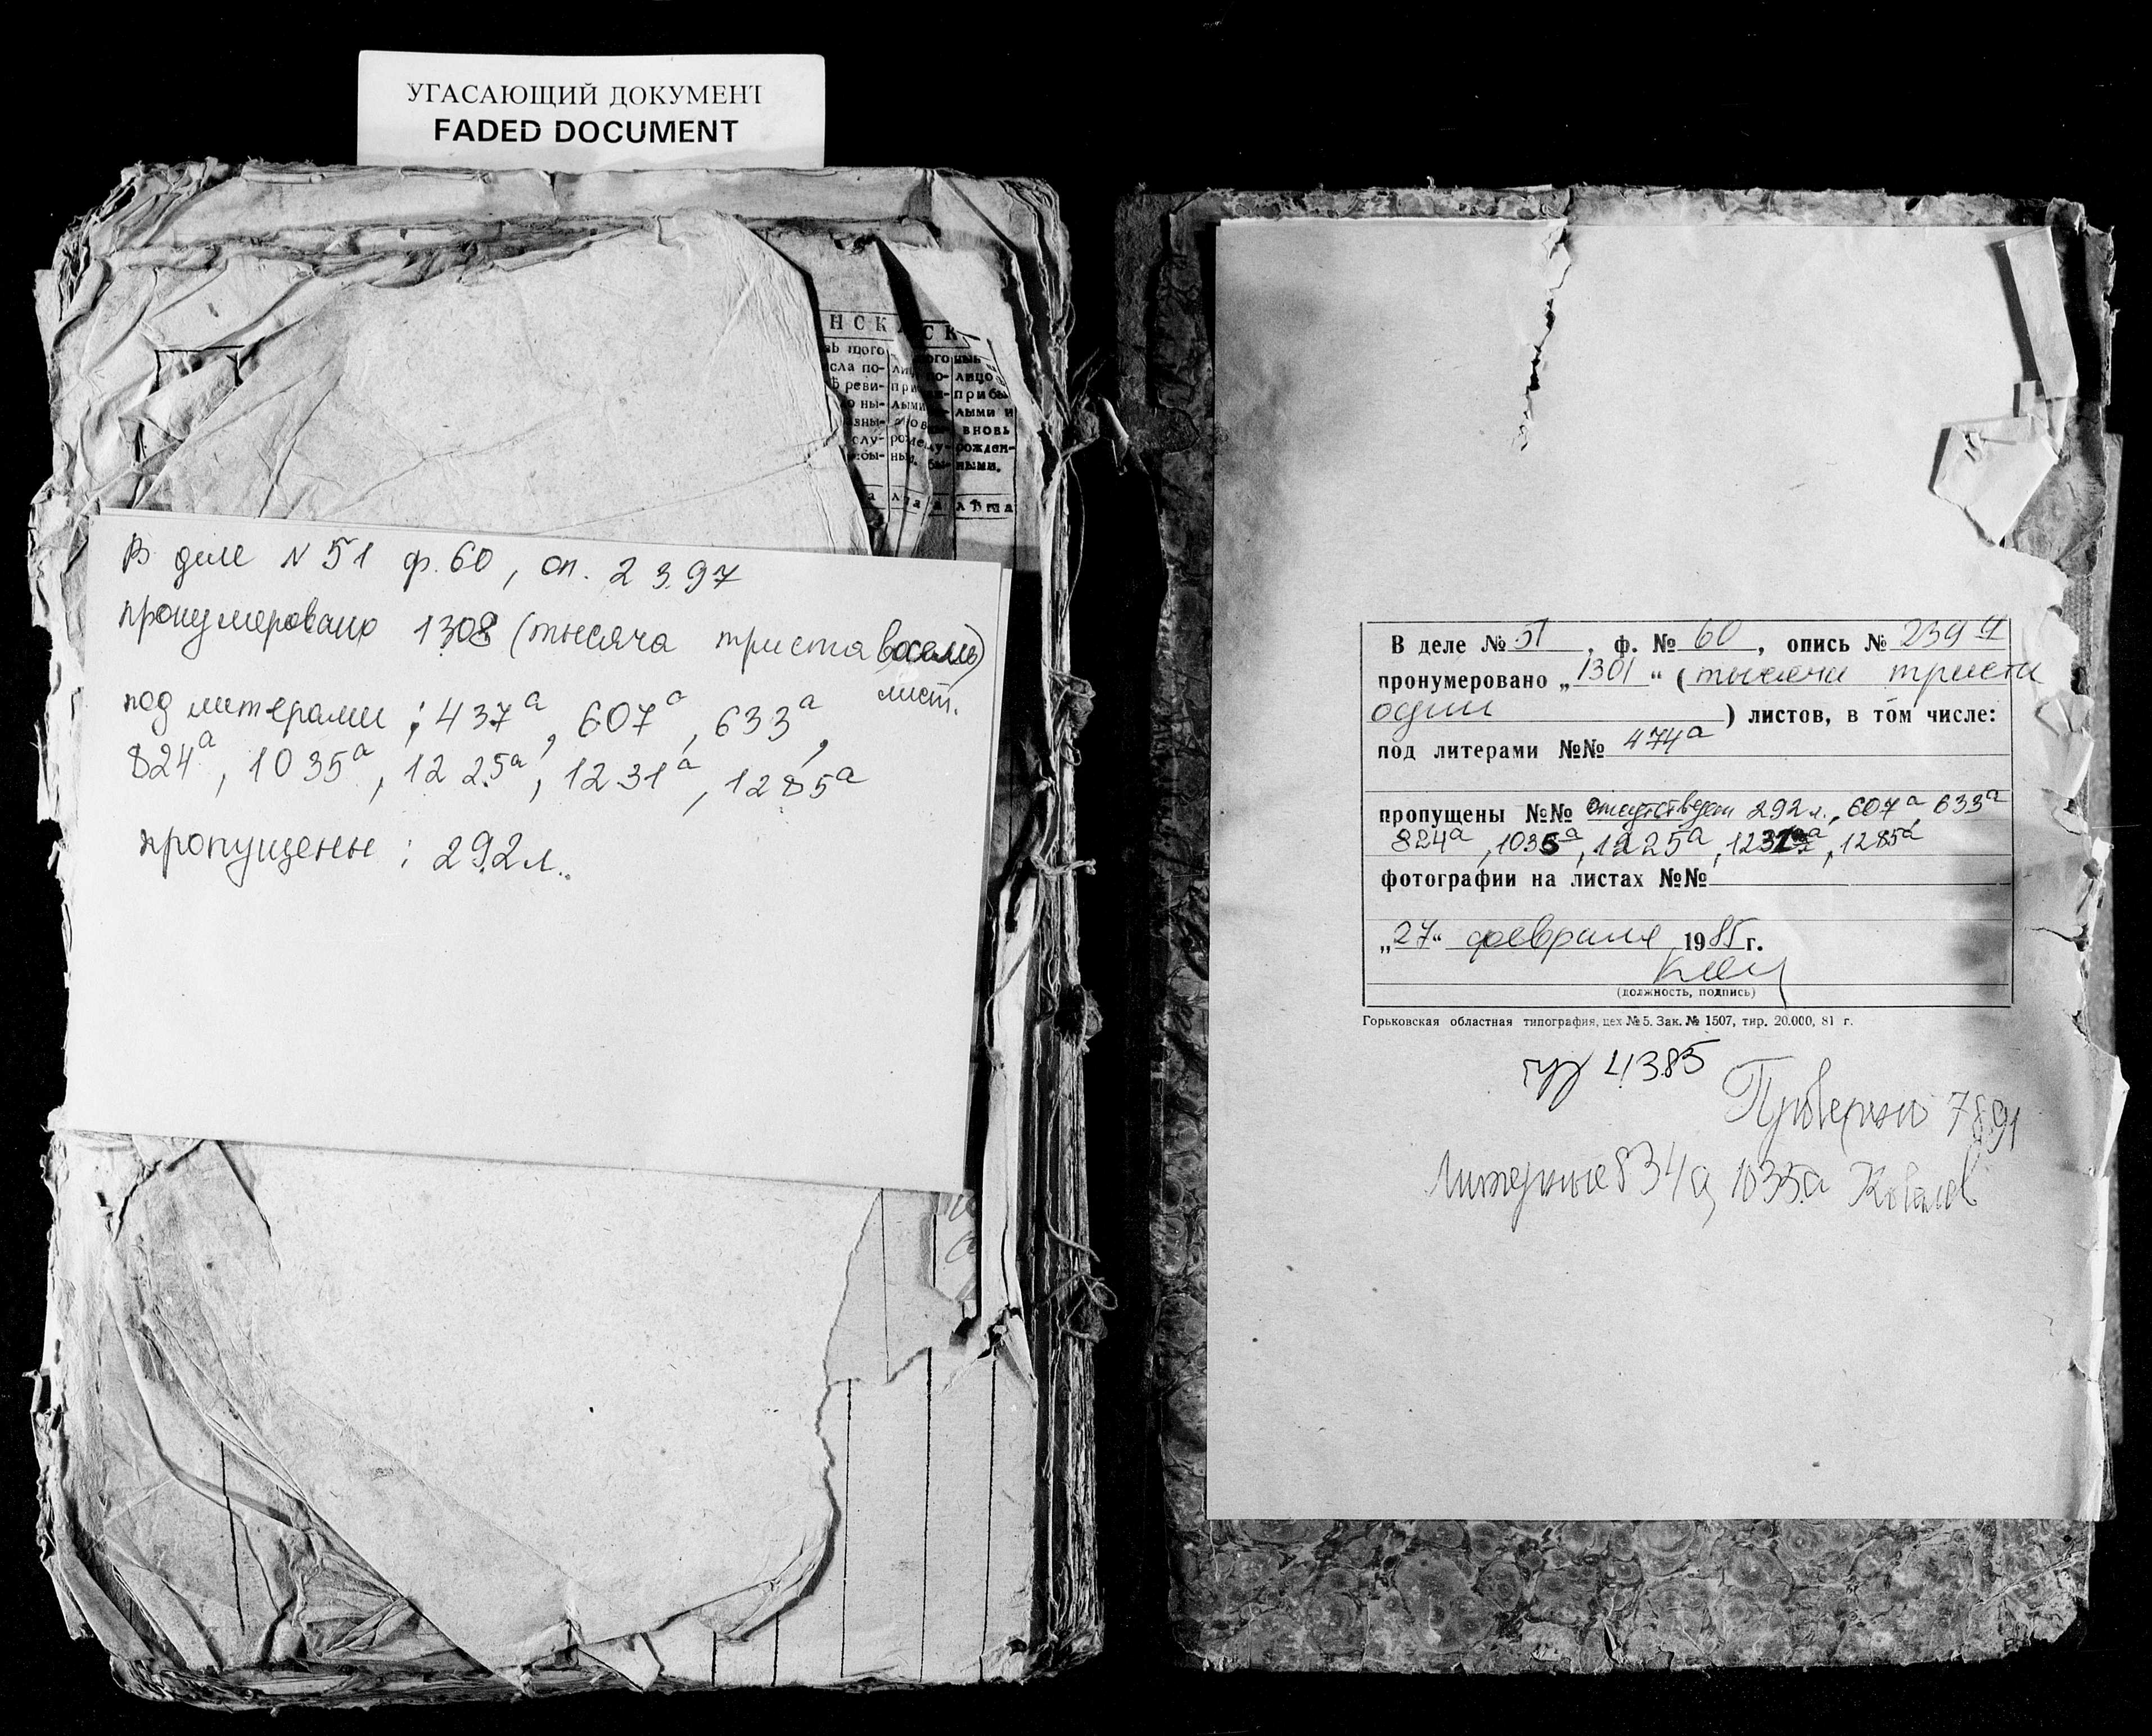 УГАСАЮЩИЙ ДОКУМЕНТ
FADED DOCUMENT
НСК СК
щого
сла по-
реви- при
ны- лыми
лицо
прибы
лыми и
вновь
рожден-
ными.
В деле N 51 ф. 60, оп. 2397
пронумеровано 1308 (тысяча триста восемь)
лист.
под литерами: 437а, 607а, 633а,
824а, 1035а, 1225а, 1231а, 1285а
пропущены: 292 л.
В деле № 51, ф. № 60, опись № 239
пронумеровано „1301“ (тысяча триста
один) листов, в том числе:
под литерами №№ 474а
пропущены №№ отсутствует 292 л., 607а 633а
824а, 1035а, 1225а, 1231а, 1285а
фотографии на листах №№
„27“ февраля 1985 г.
(должность, подпись)
Горьковская областная типография, цех № 5. Зак. № 1507, тир. 20.000, 81 г.
4385
Проверено 7891
Литерные 834а, 1035а Ковалев